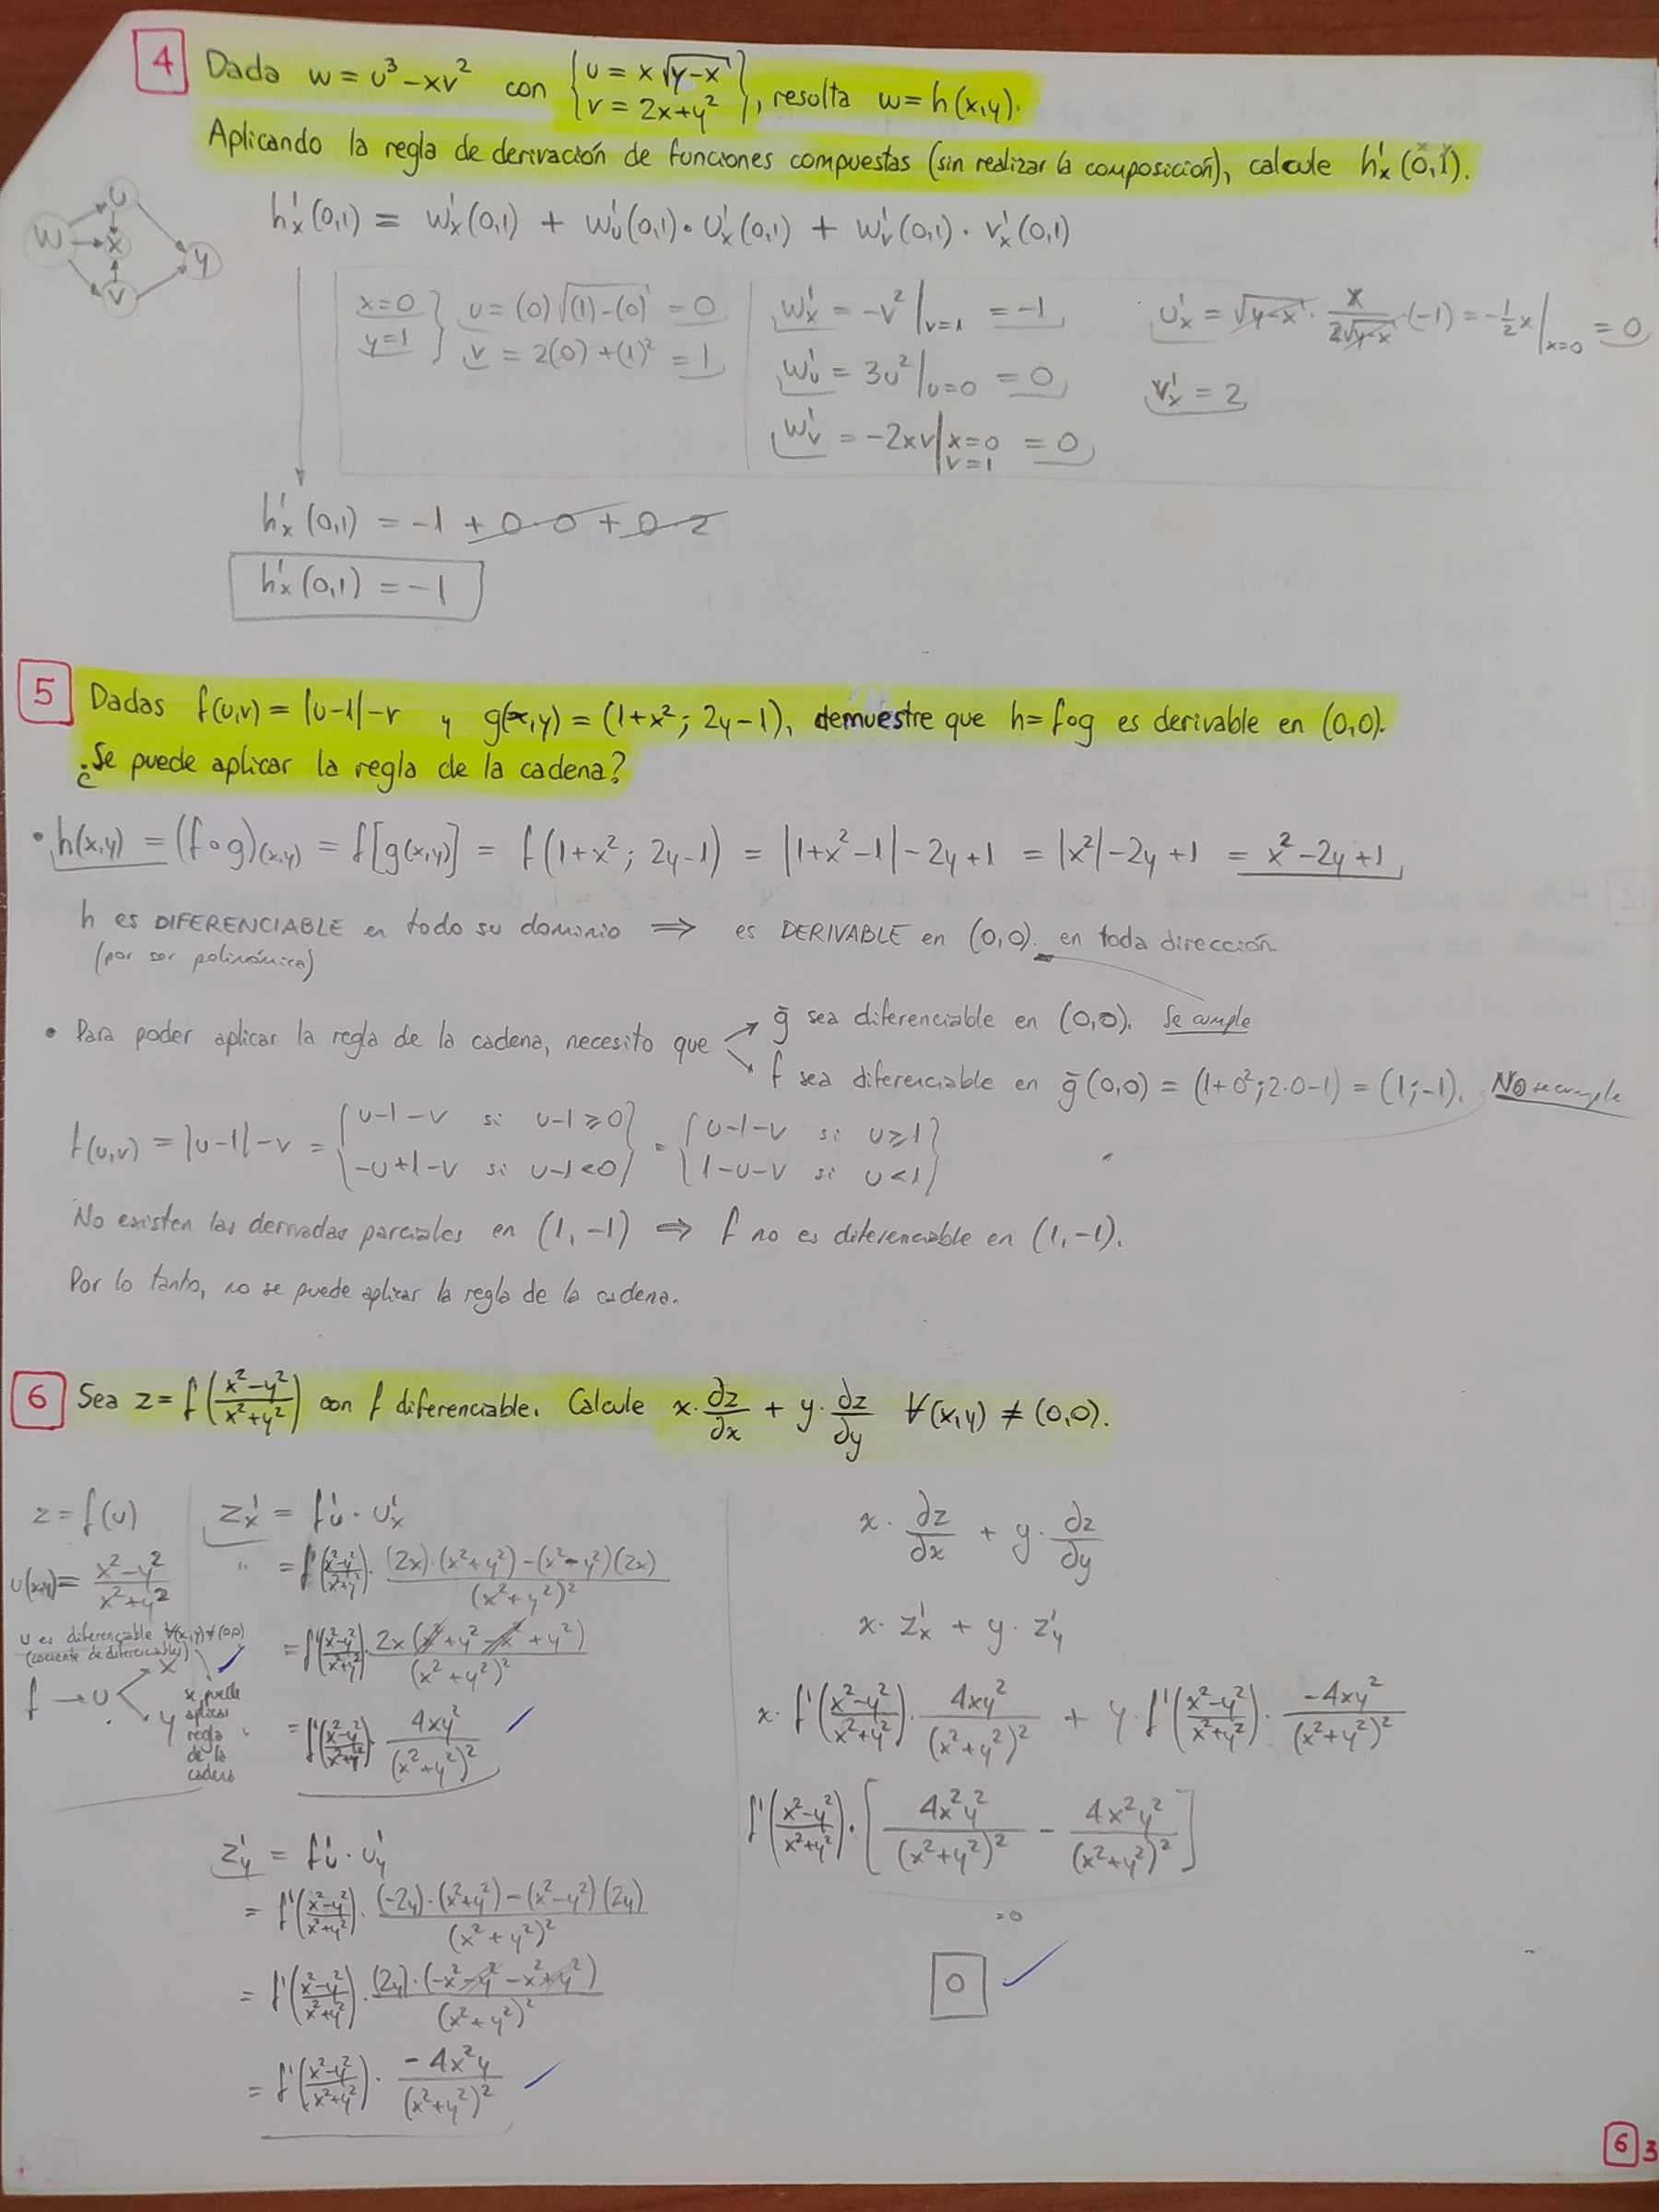 4 Dada w = u³ - xv² con { u = x √(y-x)
v = 2x+y² }, resulta w = h(x,y).
Aplicando la regla de derivación de funciones compuestas (sin realizar la composición), calcule h'x (0,1).
W u x v y
h'x(0,1) = w'x(0,1) + w'u(0,1) · u'x(0,1) + w'v(0,1) · v'x(0,1)
x=0
y=1 } u = (0)√((1)-(0)) = 0
v = 2(0) + (1)² = 1
w'x = -v² |v=1 = -1
w'u = 3u² |u=0 = 0
w'v = -2xv | x=0 v=1 = 0
u'x = √(y-x) · x/(2√(y-x)) · (-1) = -½x |x=0 = 0
v'x = 2
h'x (0,1) = -1 + 0·0 + 0·2
h'x (0,1) = -1
5 Dadas f(u,v) = |u-1| - v y g(x,y) = (1+x² ; 2y-1), demuestre que h = f∘g es derivable en (0,0).
¿Se puede aplicar la regla de la cadena?
• h(x,y) = (f∘g)(x,y) = f[g(x,y)] = f(1+x² ; 2y-1) = |1+x²-1| - 2y+1 = |x²| - 2y + 1 = x² - 2y + 1
h es DIFERENCIABLE en todo su dominio ⟹ es DERIVABLE en (0,0). en toda dirección
(por ser polinómica)
• Para poder aplicar la regla de la cadena, necesito que
ḡ sea diferenciable en (0,0). Se cumple
f sea diferenciable en ḡ(0,0) = (1+0² ; 2·0-1) = (1;-1). No se cumple
f(u,v) = |u-1| - v = { u-1-v si u-1 ≥ 0
-u+1-v si u-1 < 0 } = { u-1-v si u ≥ 1
1-u-v si u < 1 }
No existen las derivadas parciales en (1,-1) ⟹ f no es diferenciable en (1,-1).
Por lo tanto, no se puede aplicar la regla de la cadena.
6 Sea z = f((x²-y²)/(x²+y²)) con f diferenciable. Calcule x · ∂z/∂x + y · ∂z/∂y ∀(x,y) ≠ (0,0).
z = f(u)
u(x,y) = (x²-y²)/(x²+y²)
u es diferenciable ∀(x,y)≠(0,0)
(cociente de diferenciables) ✓
f → u < x y
se puede
aplicar
regla
de la
cadena
z'x = f'u · u'x
" = f'((x²-y²)/(x²+y²)) · ((2x)·(x²+y²) - (x²-y²)(2x))/(x²+y²)²
= f'((x²-y²)/(x²+y²)) · 2x(x²+y²-x²+y²)/(x²+y²)²
= f'((x²-y²)/(x²+y²)) · 4xy²/(x²+y²)² ✓
z'y = f'u · u'y
= f'((x²-y²)/(x²+y²)) · ((-2y)·(x²+y²) - (x²-y²)(2y))/(x²+y²)²
= f'((x²-y²)/(x²+y²)) · (2y)·(-x²-y²-x²+y²)/(x²+y²)²
= f'((x²-y²)/(x²+y²)) · -4x²y/(x²+y²)² ✓
x · ∂z/∂x + y · ∂z/∂y
x · z'x + y · z'y
x · f'((x²-y²)/(x²+y²)) · 4xy²/(x²+y²)² + y · f'((x²-y²)/(x²+y²)) · -4xy²/(x²+y²)²
f'((x²-y²)/(x²+y²)) · [ 4x²y²/(x²+y²)² - 4x²y²/(x²+y²)² ]
=0
0 ✓
6 3